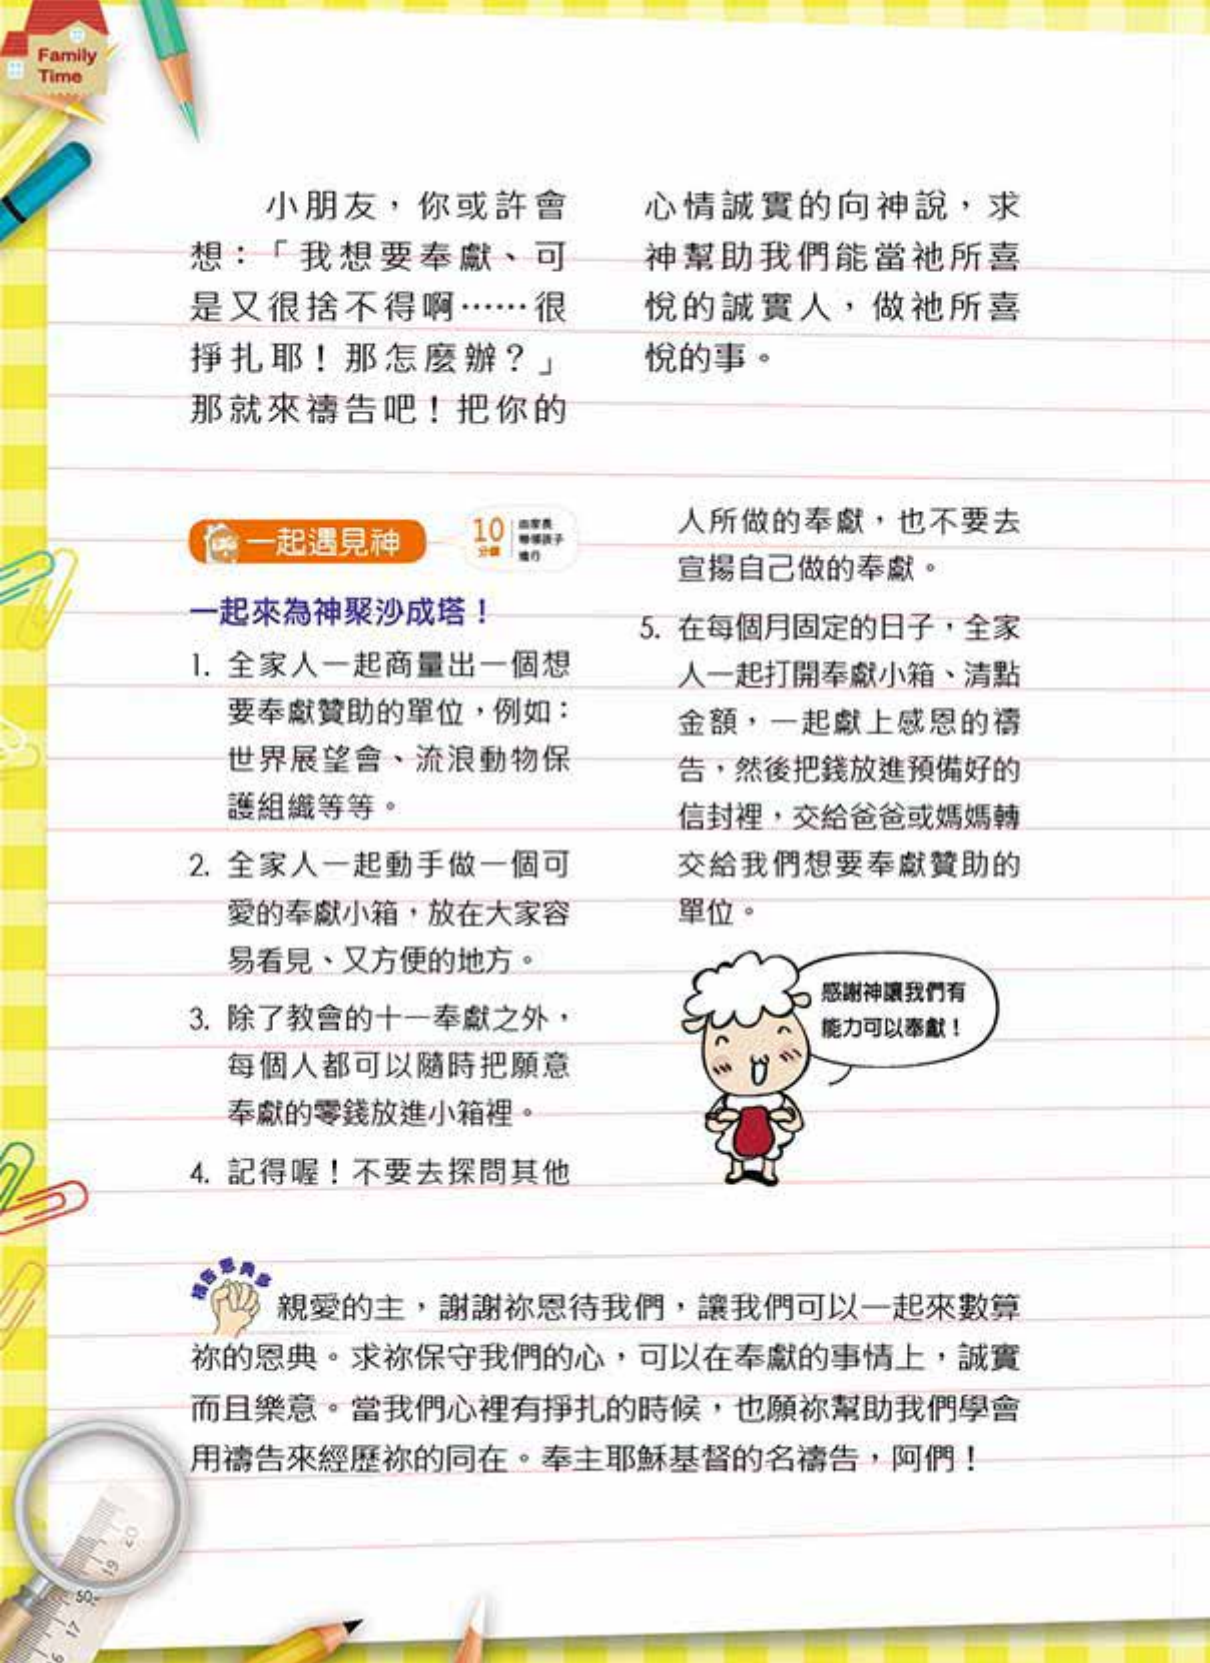 Family
Time
小朋友，你或許會
想：「我想要奉獻、可
是又很捨不得啊……很
掙扎耶！那怎麼辦？」
那就來禱告吧！把你的
心情誠實的向神說，求
神幫助我們能當祂所喜
悅的誠實人，做祂所喜
悅的事。
一起遇見神
10
分鐘
由家長
帶領孩子
進行
一起來為神聚沙成塔！
1. 全家人一起商量出一個想
要奉獻贊助的單位，例如：
世界展望會、流浪動物保
護組織等等。
2. 全家人一起動手做一個可
愛的奉獻小箱，放在大家容
易看見、又方便的地方。
3. 除了教會的十一奉獻之外，
每個人都可以隨時把願意
奉獻的零錢放進小箱裡。
4. 記得喔！不要去探問其他
人所做的奉獻，也不要去
宣揚自己做的奉獻。
5. 在每個月固定的日子，全家
人一起打開奉獻小箱、清點
金額，一起獻上感恩的禱
告，然後把錢放進預備好的
信封裡，交給爸爸或媽媽轉
交給我們想要奉獻贊助的
單位。
感謝神讓我們有
能力可以奉獻！
禱告恩典多
親愛的主，謝謝祢恩待我們，讓我們可以一起來數算
祢的恩典。求祢保守我們的心，可以在奉獻的事情上，誠實
而且樂意。當我們心裡有掙扎的時候，也願祢幫助我們學會
用禱告來經歷祢的同在。奉主耶穌基督的名禱告，阿們！
20
19
50
17